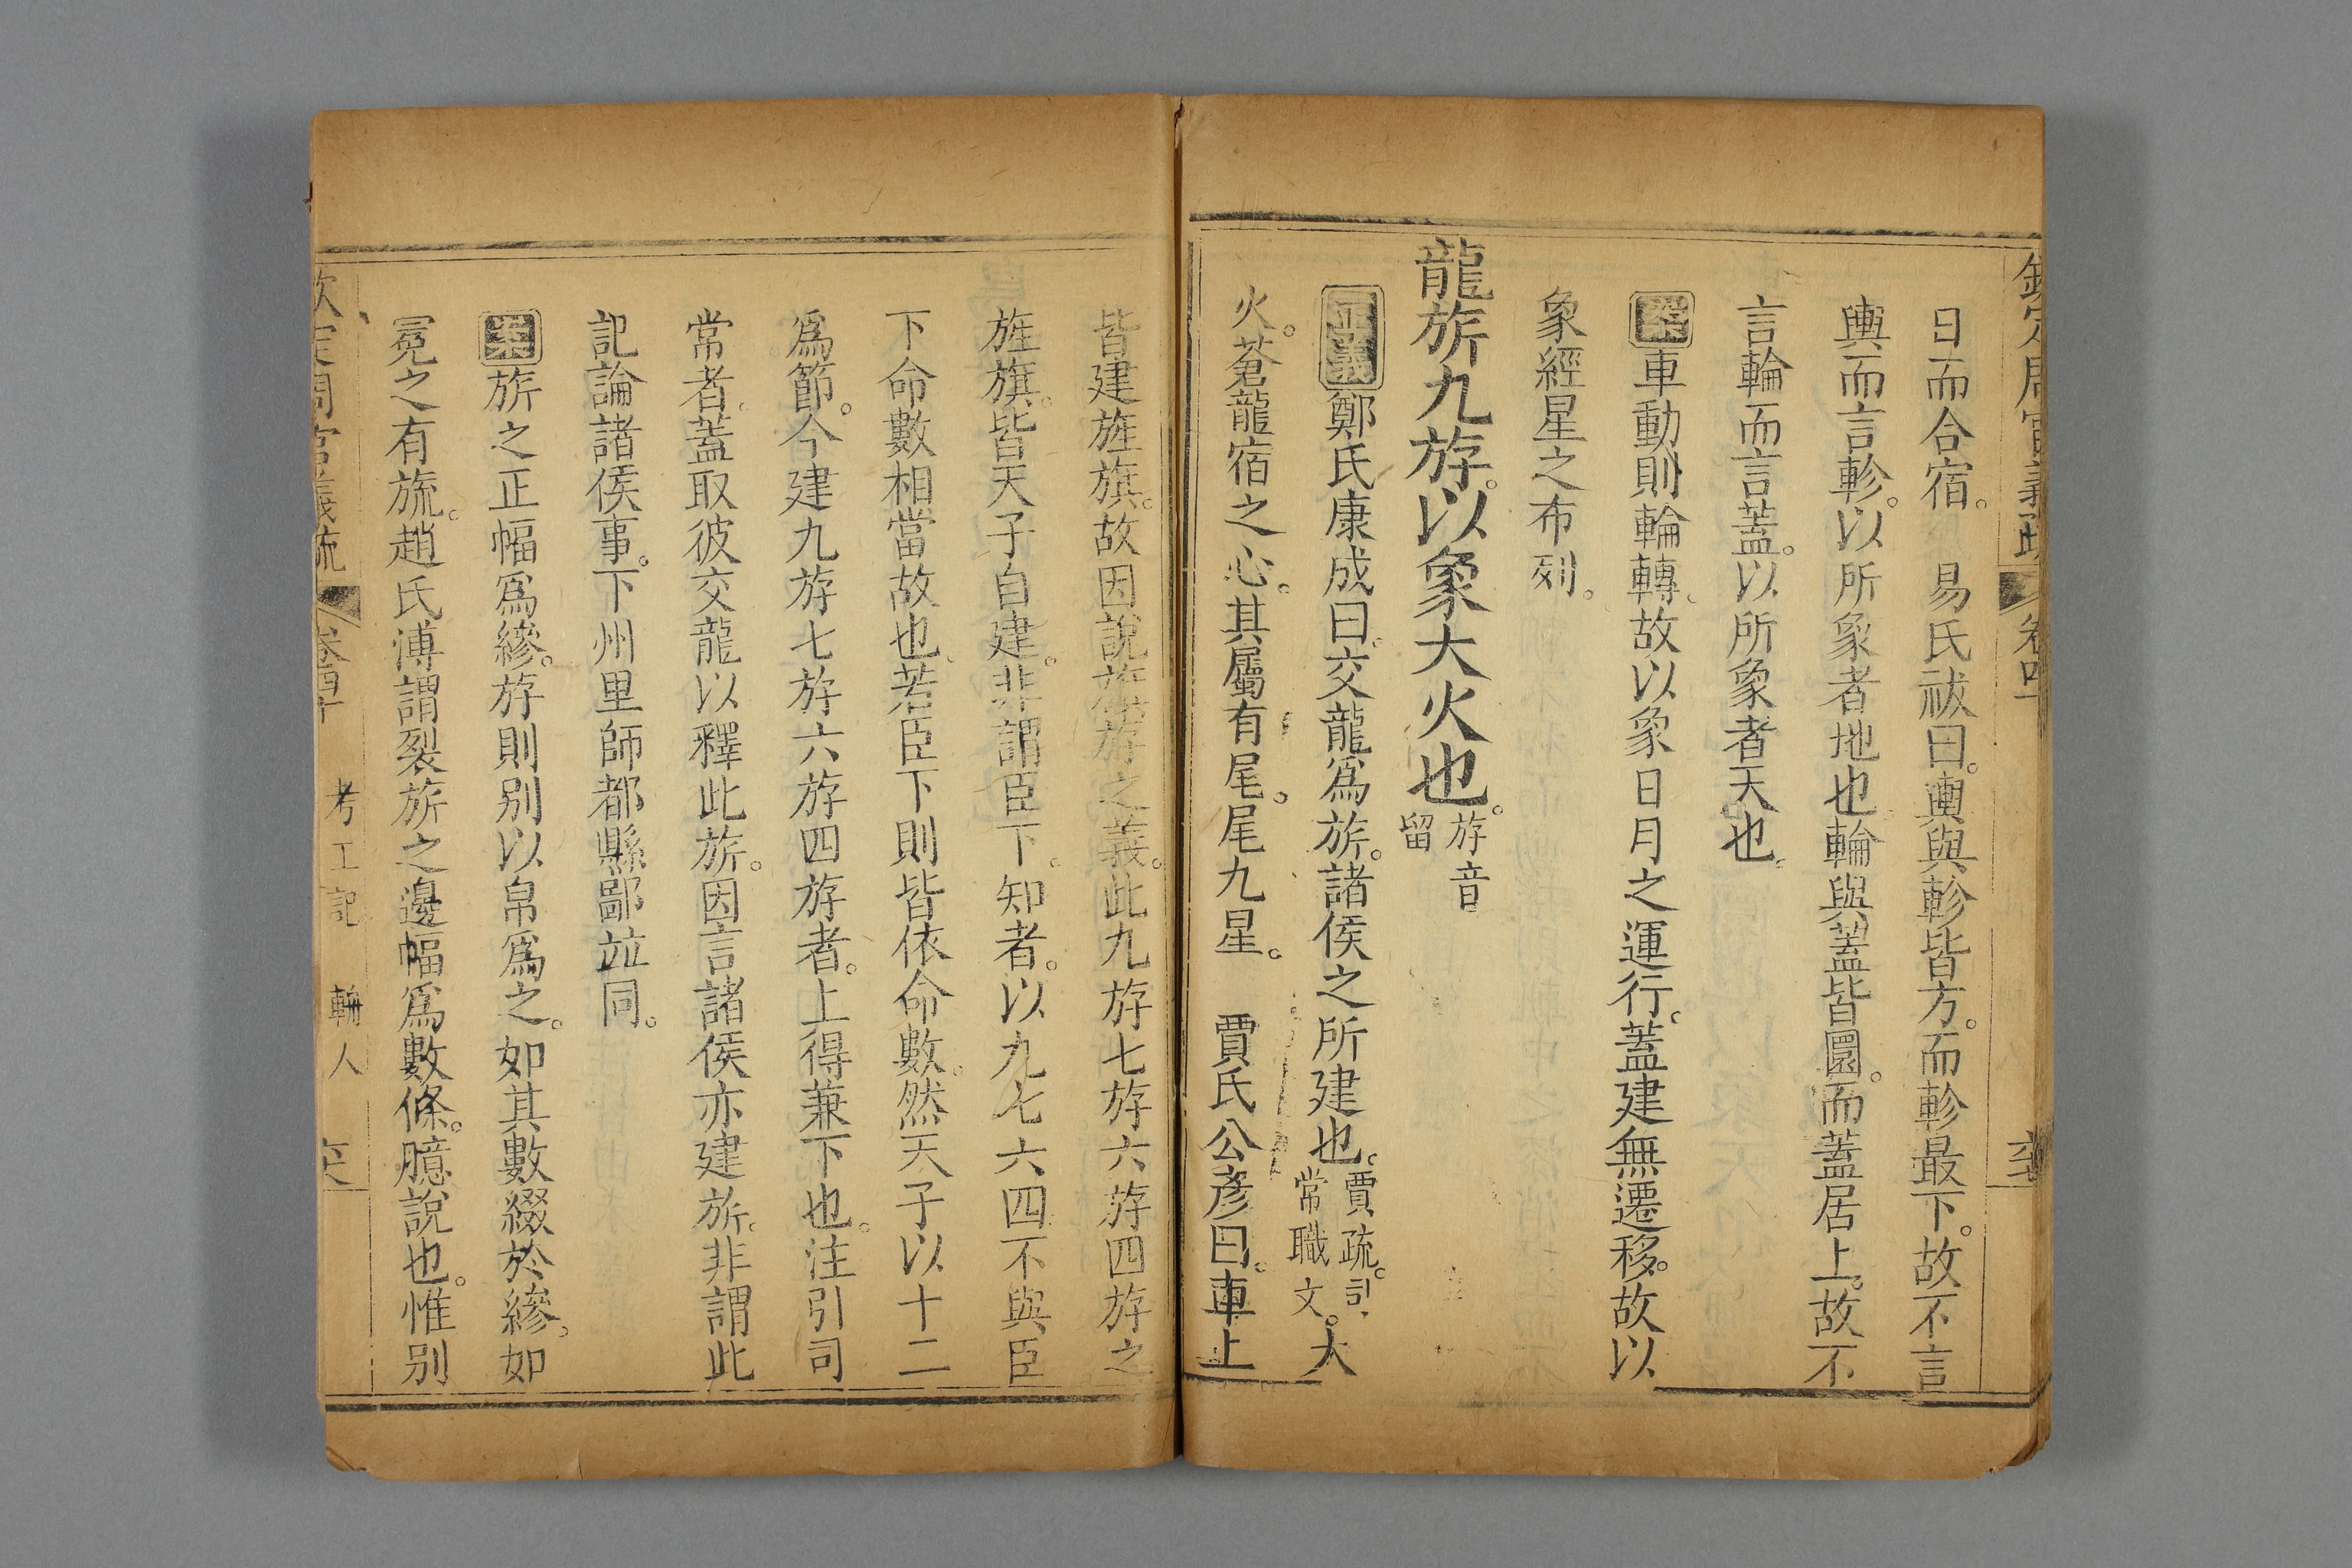 欽定周官義疏 卷四十
日而合宿。 易氏祓曰。輿與軫皆方。而軫最下。故不言
輿而言軫。以所象者地也輪與蓋皆圜。而蓋居上。故不
言輪而言蓋。以所象者天也。
案車動則輪轉。故以象日月之運行。蓋建無遷移。故以
象經星之布列。
龍旂九斿。以象大火也。斿音留
正義鄭氏康成曰。交龍爲旂。諸侯之所建也。賈疏。司常職文。大
火。蒼龍宿之心。其屬有尾。尾九星。 賈氏公彥曰。車上
皆建旌旗。故因說旌斿之義。此九斿七斿六斿四斿之
旌旗。皆天子自建。非謂臣下。知者。以九七六四不與臣
下命數相當故也。若臣下則皆依命數。然天子以十二
爲節。今建九斿七斿六斿四斿者。上得兼下也。注引司
常者。蓋取彼交龍以釋此旂。因言諸侯亦建旂。非謂此
記論諸侯事。下州里師都縣鄙竝同。
案旂之正幅爲縿。斿則別以帛爲之。如其數綴於縿。如
冕之有旒。趙氏溥謂裂旂之邊幅爲數條。臆說也。惟別
欽定周官義疏 卷四十 考工記 輈人